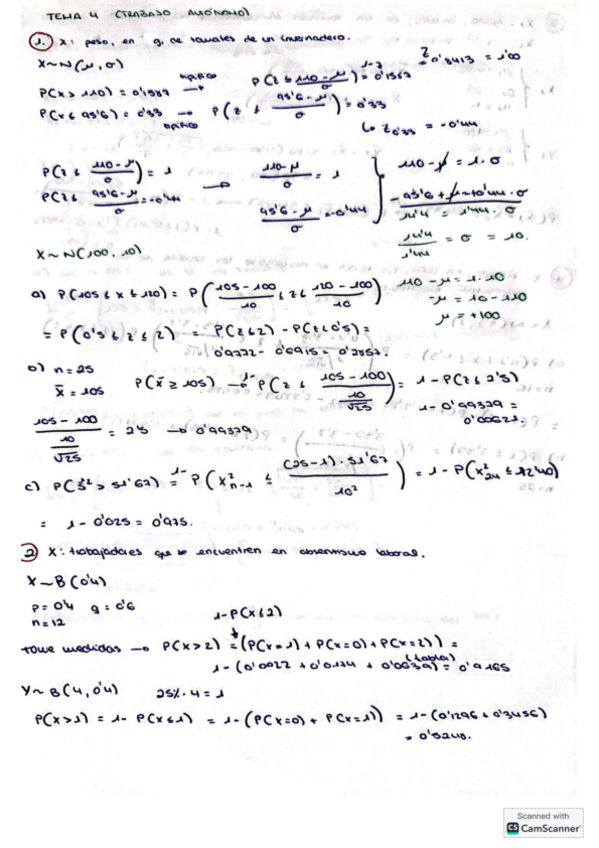 TEMA 4 (TRABAJO AUTÓNOMO)
1. X: peso, en g, de rosales de un invernadero.
X~N(μ, σ)
P(X > 110) = 0'1587 → P(z ≤ (110-μ)/σ) = 0'1587 z 0'8413 = 1'00
P(X ≤ 95'6) = 0'33 → P(z ≤ (95'6-μ)/σ) = 0'33
↳ z0'33 = -0'44
P(z ≤ (110-μ)/σ) = 1 → (110-μ)/σ = 1 110-μ = 1·σ
P(z ≤ (95'6-μ)/σ) = -0'44 (95'6-μ)/σ = -0'44 -95'6+μ = +0'44·σ
14'4 = 1'44·σ
14'4/1'44 = σ = 10.
X~N(100, 10)
110-μ = 1·10
-μ = 10-110
μ = +100
a) P(105 ≤ x ≤ 120) = P((105-100)/10 ≤ z ≤ (120-100)/10)
= P(0'5 ≤ z ≤ 2) → P(z ≤ 2) - P(z ≤ 0'5) =
0'9772 - 0'6915 = 0'2857.
b) n = 25
x̄ = 105 P(x̄ ≥ 105) → 1- P(z ≤ (105-100)/(10/√25)) = 1 - P(z ≤ 2'5)
1 - 0'99379 =
0'00621.
(105-100)/(10/√25) = 2'5 → 0'99379
c) P(S² > 51'67) = 1- P(X²n-1 ≤ ((25-1)·51'67)/10²) = 1 - P(X²24 ≤ 12'40)
= 1 - 0'025 = 0'975.
2 X: trabajadores que se encuentren en absentismo laboral.
X~B(0'4)
p = 0'4 q = 0'6
n = 12
1-P(X≤2)
tome medidas → P(X>2) = (P(X=1) + P(X=0) + P(X=2)) =
(tabla)
1-(0'0022 + 0'0174 + 0'0639) = 0'9165
Y~B(4, 0'4) 25%·4 = 1
P(X>1) = 1 - P(X≤1) = 1-(P(X=0) + P(X=1)) = 1-(0'1296 + 0'3456)
= 0'5248.
Scanned with
CS CamScanner